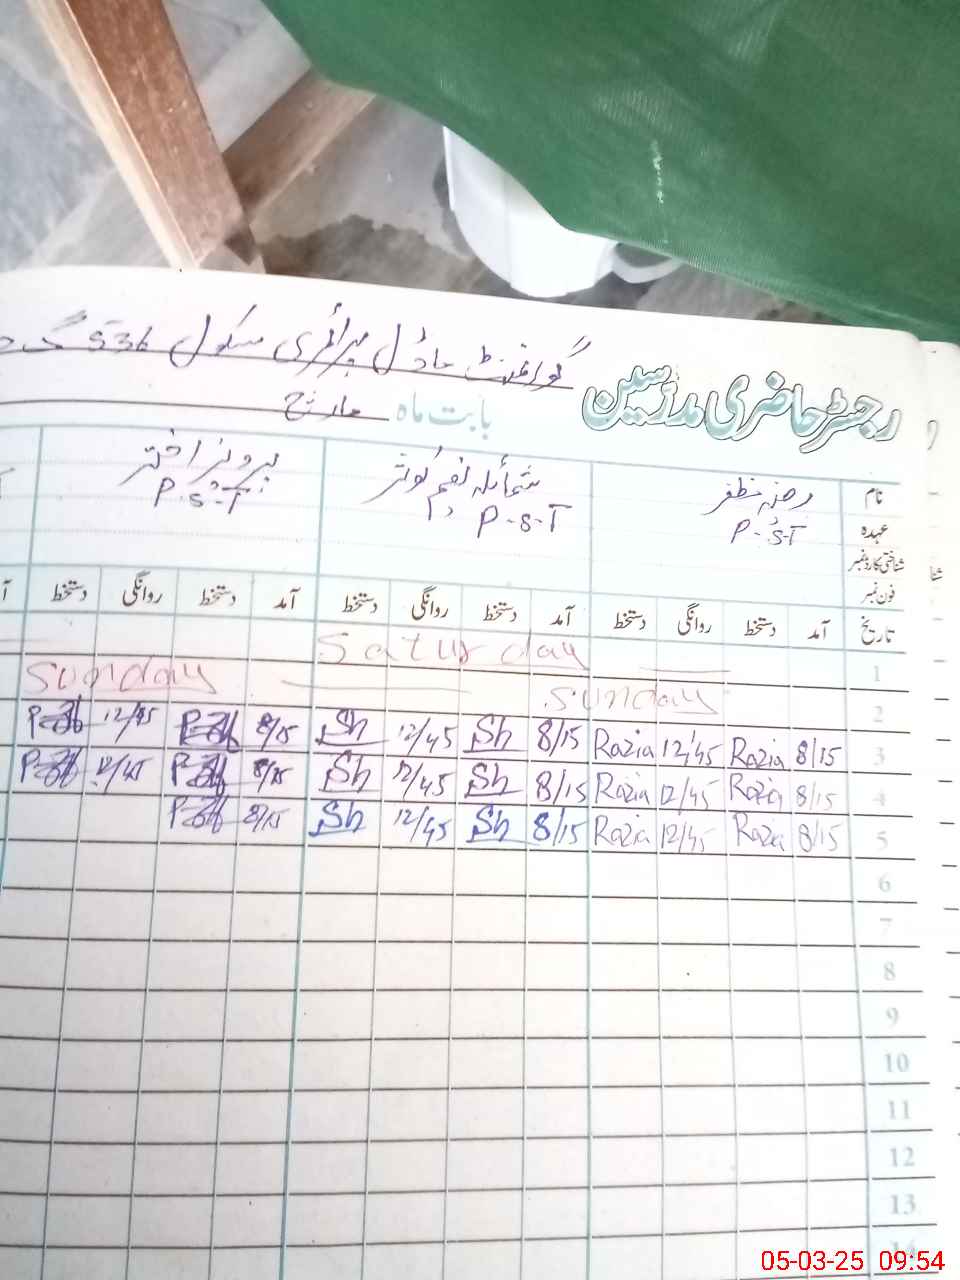 گورنمنٹ ماڈل پرائمری سکول 536 گ
رجسٹر حاضری مدرسین
بابت ماہ مارچ
نام رضیہ مظفر شمائلہ نغم کوثر پروینز اختر
عہدہ P.S.T P-S-T P.S.T
شناختی کارڈ نمبر
فون نمبر
تاریخ آمد دستخط روانگی دستخط آمد دستخط روانگی دستخط آمد دستخط روانگی دستخط
1 Saturday
2 Sunday Sunday
3 8/15 Razia 12/45 Razia 8/15 Sh 12/45 Sh 8/15 12/45
4 8/15 Razia 12/45 Razia 8/15 Sh 12/45 Sh 8/15 12/45
5 8/15 Razia 12/45 Razia 8/15 Sh 12/45 Sh 8/15
6
7
8
9
10
11
12
13
14
05-03-25 09:54